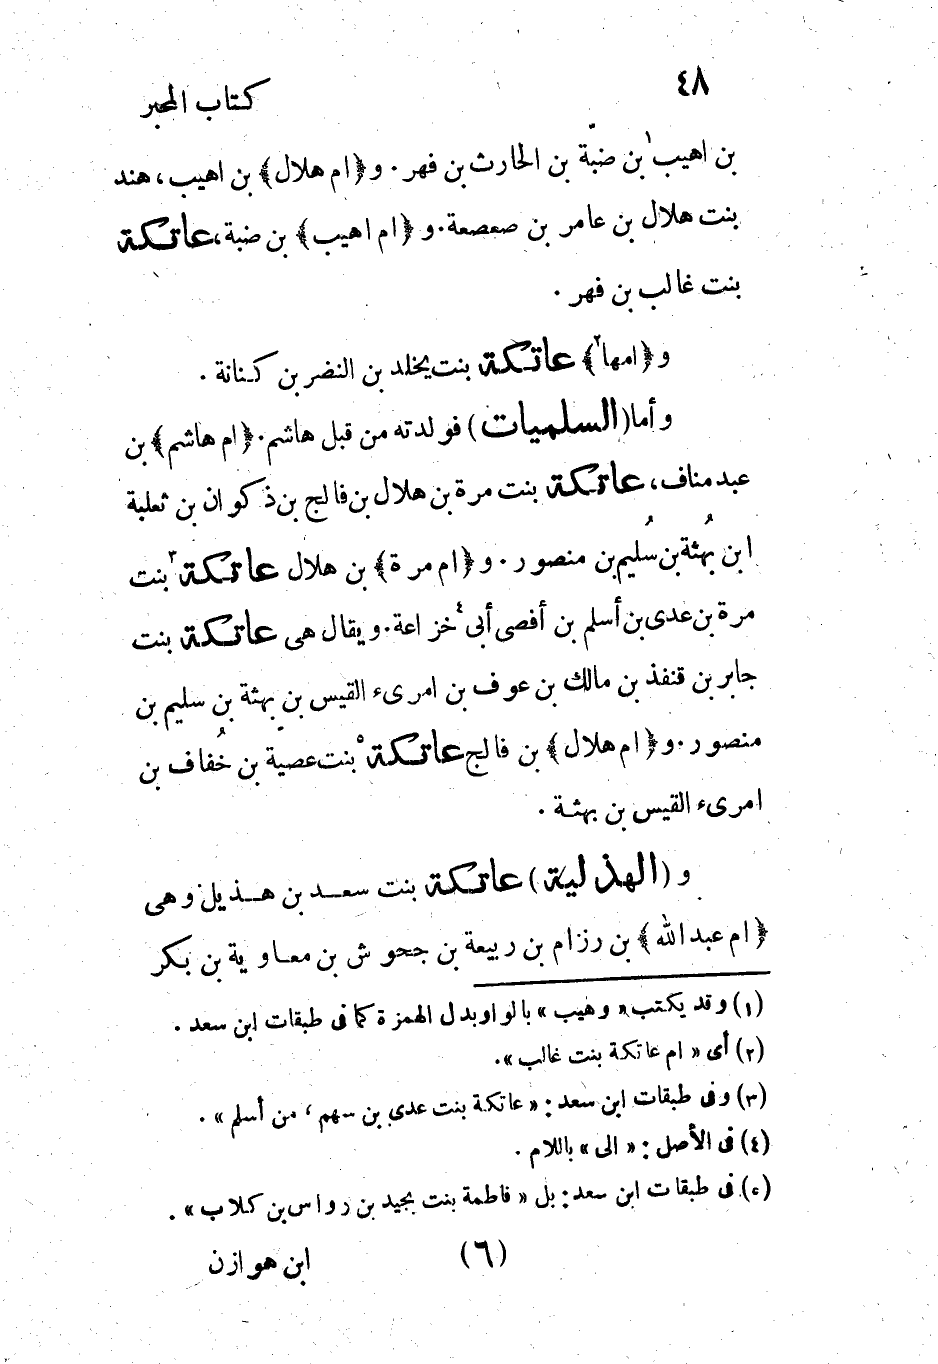 ٤٨
كتاب المحبر
بن اهيب¹ بن ضبّة بن الحارث بن فهر. و﴿ام هلال﴾ بن اهيب، هند
بنت هلال بن عامر بن صعصعة. و﴿ام اهيب﴾ بن ضبة، عاتكة
بنت غالب بن فهر.
و﴿امها٢﴾ عاتكة بنت يخلد بن النضر بن كنانة.
وأما (السلميات) فولدته من قبل هاشم. ﴿ام هاشم﴾ بن
عبد مناف، عاتكة بنت مرة بن هلال بن فالج بن ذكوان بن ثعلبة
ابن بُهثة بن سُليم بن منصور. و﴿ام مرة﴾ بن هلال عاتكة٣ بنت
مرة بن عدى بن أسلم بن أفصى أبى٤ خزاعة. ويقال هى عاتكة بنت
جابر بن قنفذ بن مالك بن عوف بن امرىء القيس بن بهثة بن سليم بن
منصور. و﴿ام هلال﴾ بن فالج عاتكة٥ بنت عصيّة بن خُفاف بن
امرىء القيس بن بهثة.
و (الهذلية) عاتكة بنت سعد بن هذيل وهى
﴿ام عبد الله﴾ بن رزام بن ربيعة بن جحوش بن معاوية بن بكر
(١) وقد يكتب « وهيب » بالواو بدل الهمزة كما فى طبقات ابن سعد.
(٢) أى « ام عاتكة بنت غالب ».
(٣) وفى طبقات ابن سعد: « عاتكة بنت عدى بن سهم، من أسلم ».
(٤) فى الأصل: « الى » باللام.
(٥) فى طبقات ابن سعد: بل « فاطمة بنت بجيد بن رواس بن كلاب ».
(٦)
ابن هوازن